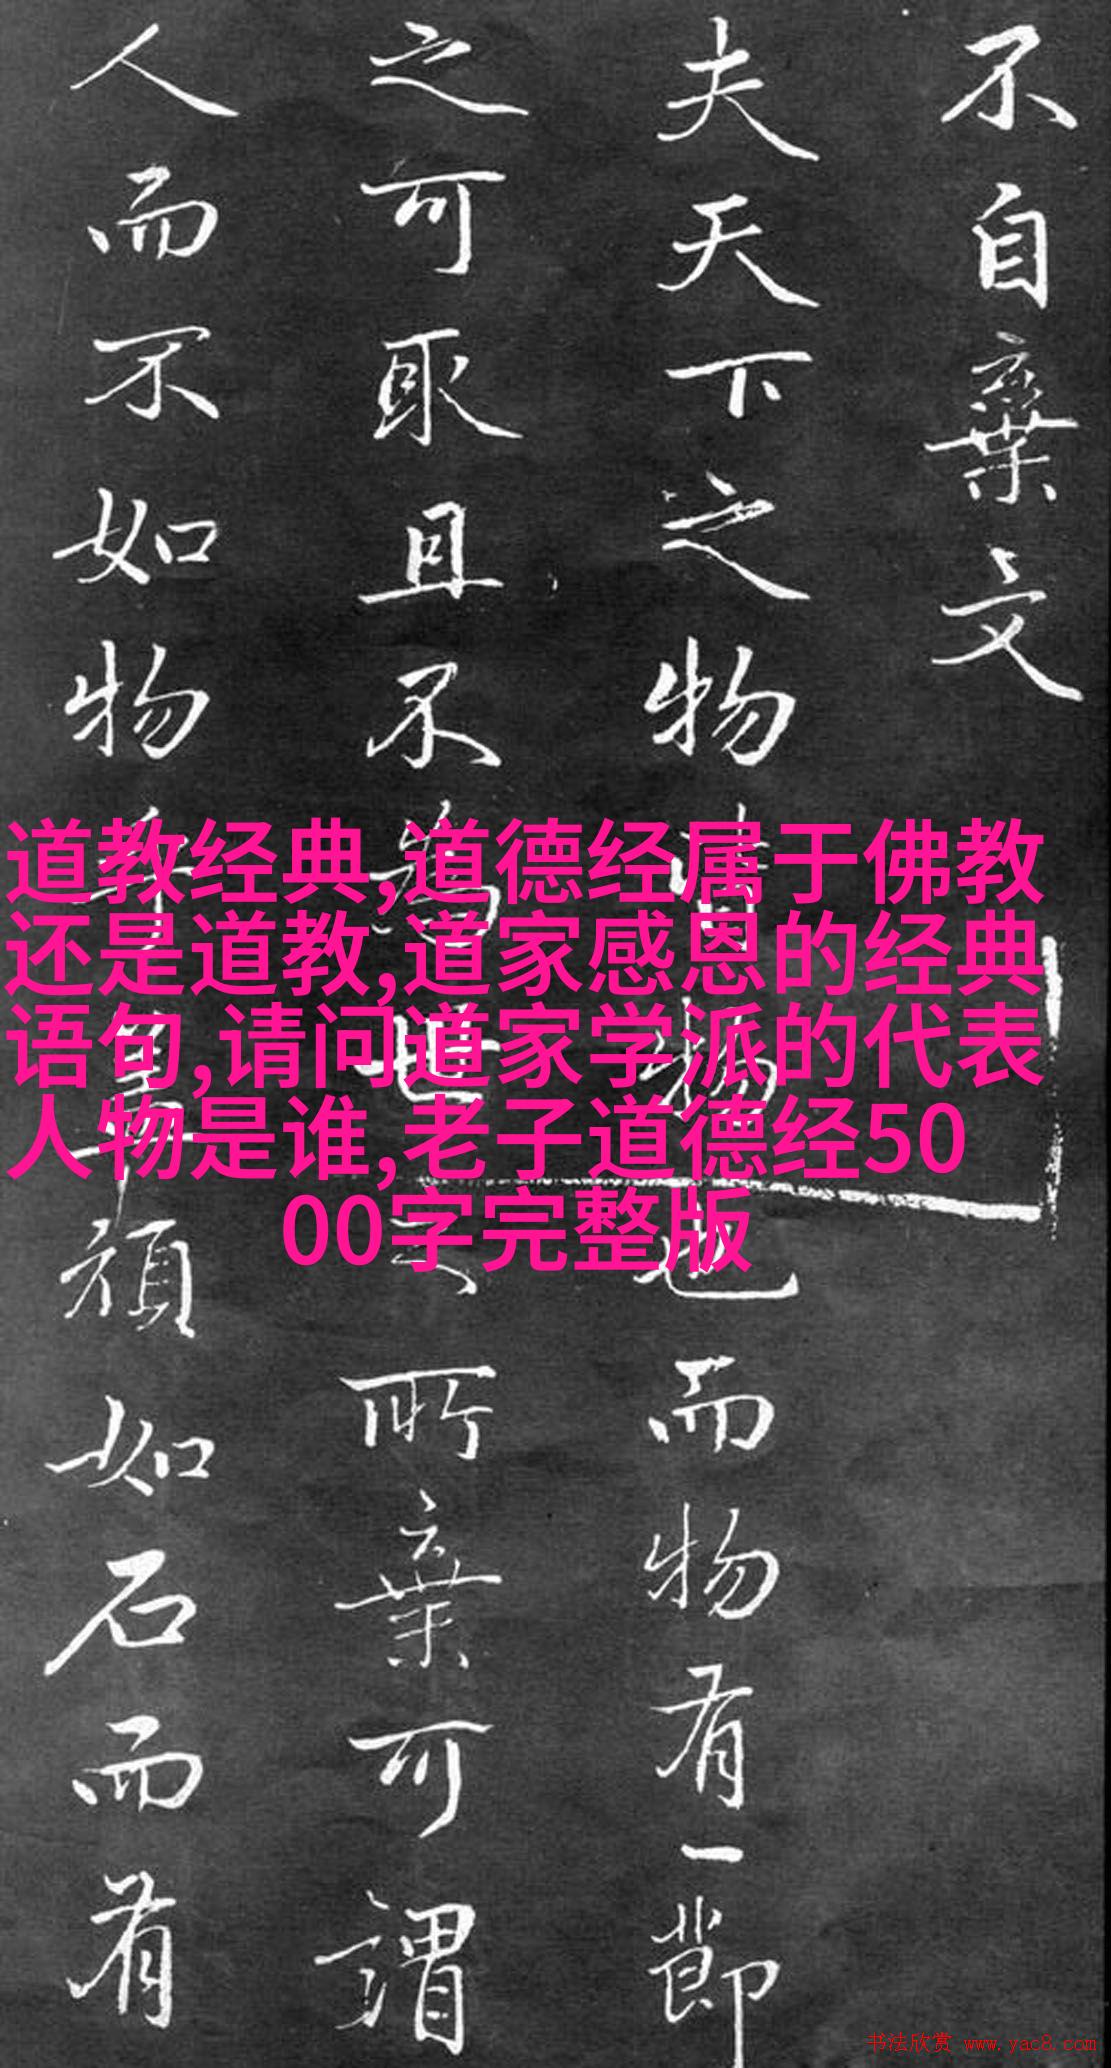 不自棄文
夫天下之物皆物也而物有一節
之可取且不為世之所棄可謂
人而不如物乎蓋頑如石而有
道教经典,道德经属于佛教
还是道教,道家感恩的经典
语句,请问道家学派的代表
人物是谁,老子道德经50
00字完整版
书法欣赏 www.yac8.com